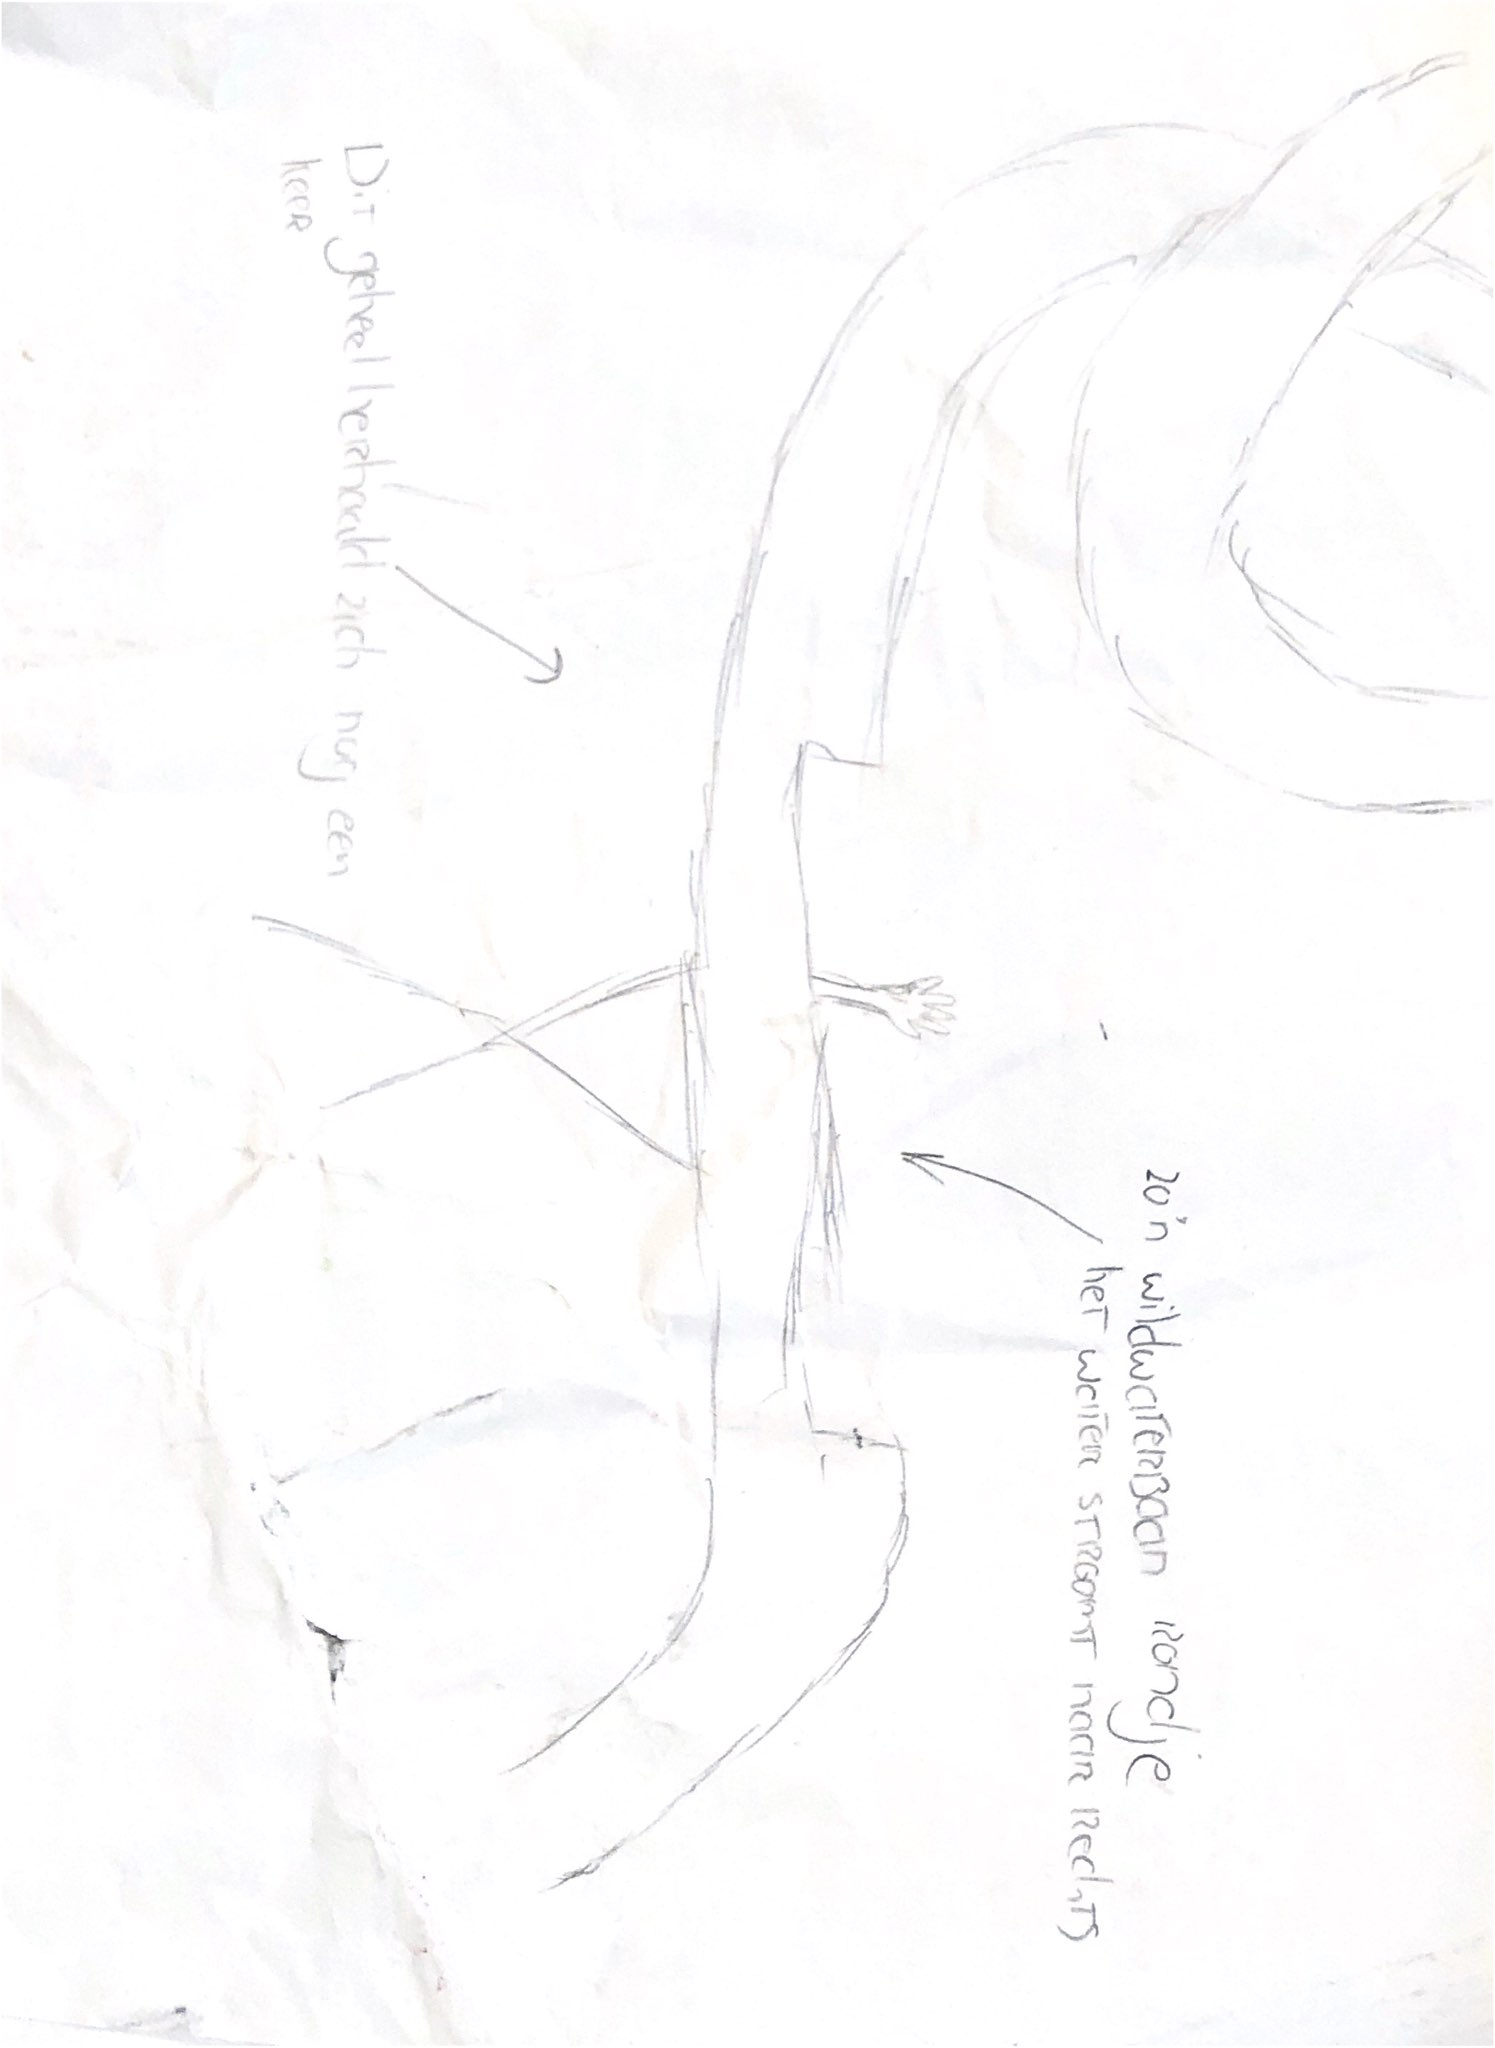 zo'n wildwaterbaan rondje
het water stroomt naar rechts
Dit geheel herhaalt zich nog een
keer